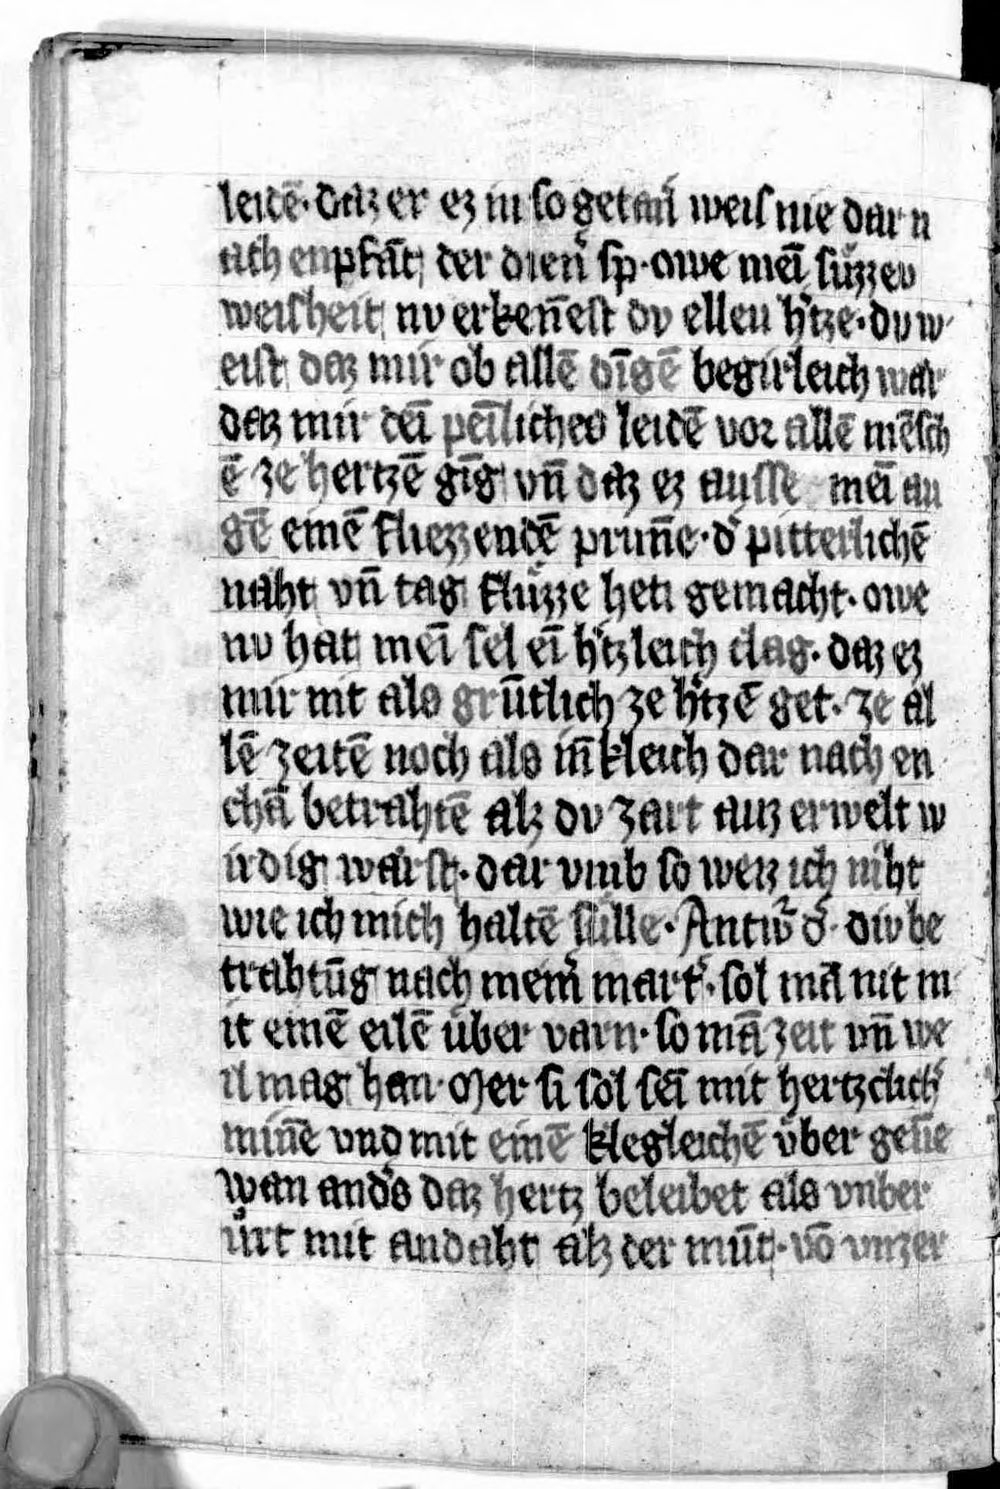 leidē · daz er ez in so getanr̄ weis nie dar n
ach enpfāt, der dienr̄ sp · owe meī suͤzzev
weisheit, nv erkeñest dv ellev h̓tze · dv w
eist, daz mir ob allē dīgē begirleich war
daz mir deī peīliches leidē vor allē mēsch
ē ze hertzē gīg, vn̄ daz ez ausse meī au
gē einē fliezzendē prun̄e · d̓ pitterlichē
naht, vn̄ tag, fluͤzze het, gemacht · owe
nv hat, meī sel eī h̓tzleich clag · daz ez
mir nit als grūtlich ze h̓tzē get · ze al
lē zeitē noch als iñkleich dar nach en
chā betrahtē alz dv zart auz erwelt w
irdig, waͤrst, · dar vmb so weiz ich niht
wie ich mich haltē suͤlle · Antw̄ d̓ · div be
trahtūg nach mein̓ mart̓ · sol mā nit m
it einē eilē uͤber varn · so mā zeit vn̄ we
il mag, han · Mer si sol seī mit hertzclich̓
miñe vnd mit einē klegleichē uͤber geūe
wan and̓s daz hertz beleibet als vnber
uͤrt mit andaht, alz der mūt, · vō vnzer